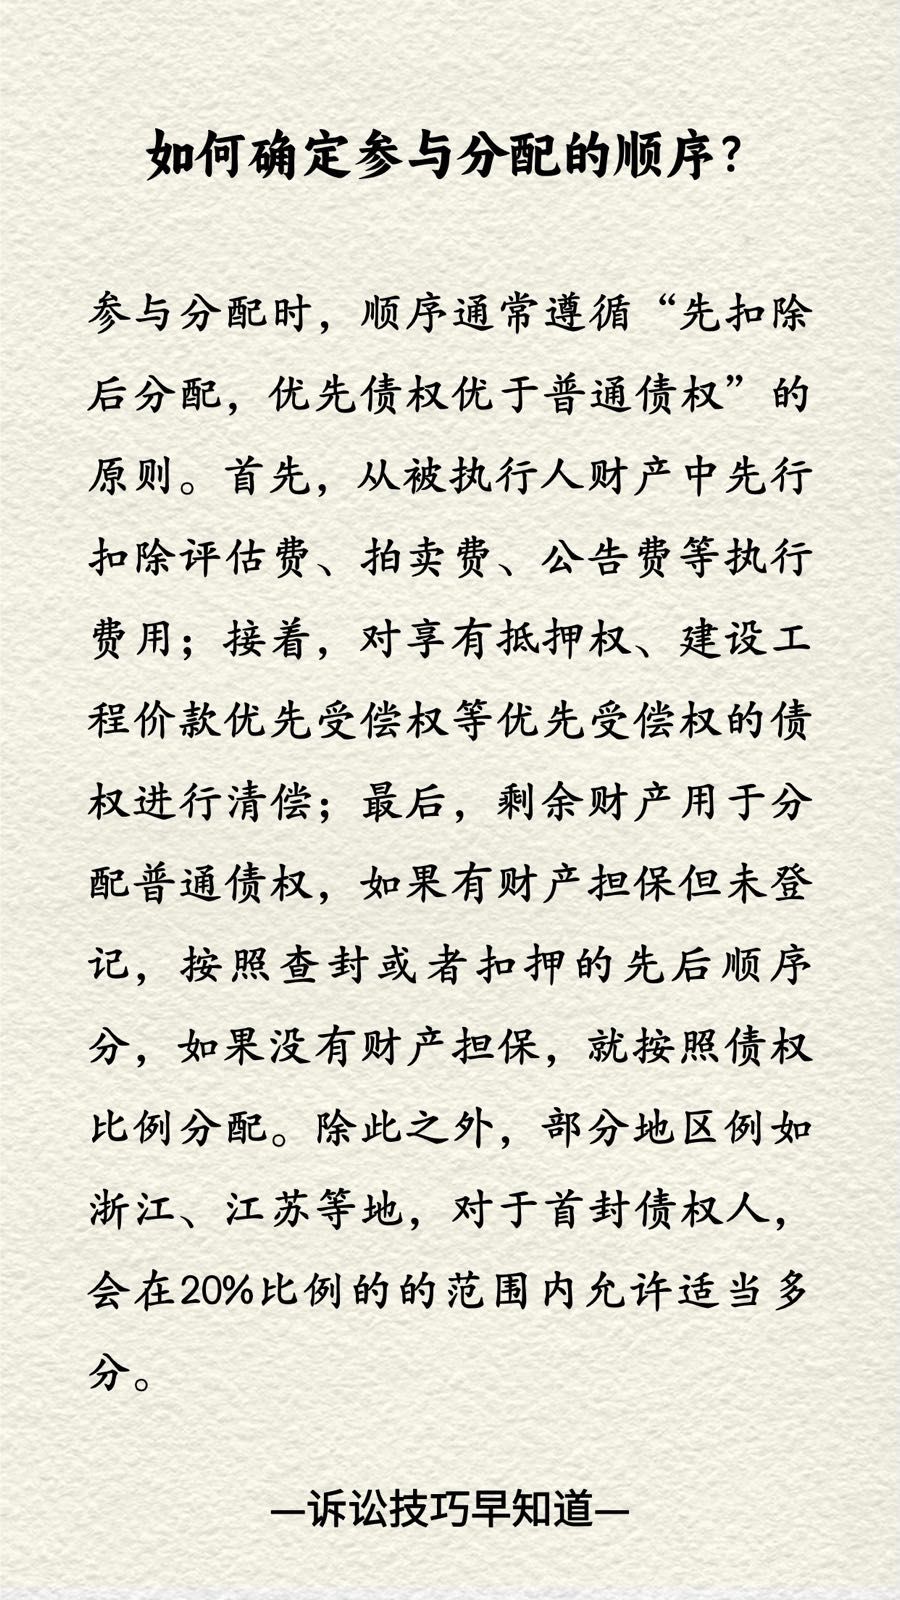 如何确定参与分配的顺序？
参与分配时，顺序通常遵循“先扣除
后分配，优先债权优于普通债权”的
原则。首先，从被执行人财产中先行
扣除评估费、拍卖费、公告费等执行
费用；接着，对享有抵押权、建设工
程价款优先受偿权等优先受偿权的债
权进行清偿；最后，剩余财产用于分
配普通债权，如果有财产担保但未登
记，按照查封或者扣押的先后顺序
分，如果没有财产担保，就按照债权
比例分配。除此之外，部分地区例如
浙江、江苏等地，对于首封债权人，
会在20%比例的的范围内允许适当多
分。
—诉讼技巧早知道—